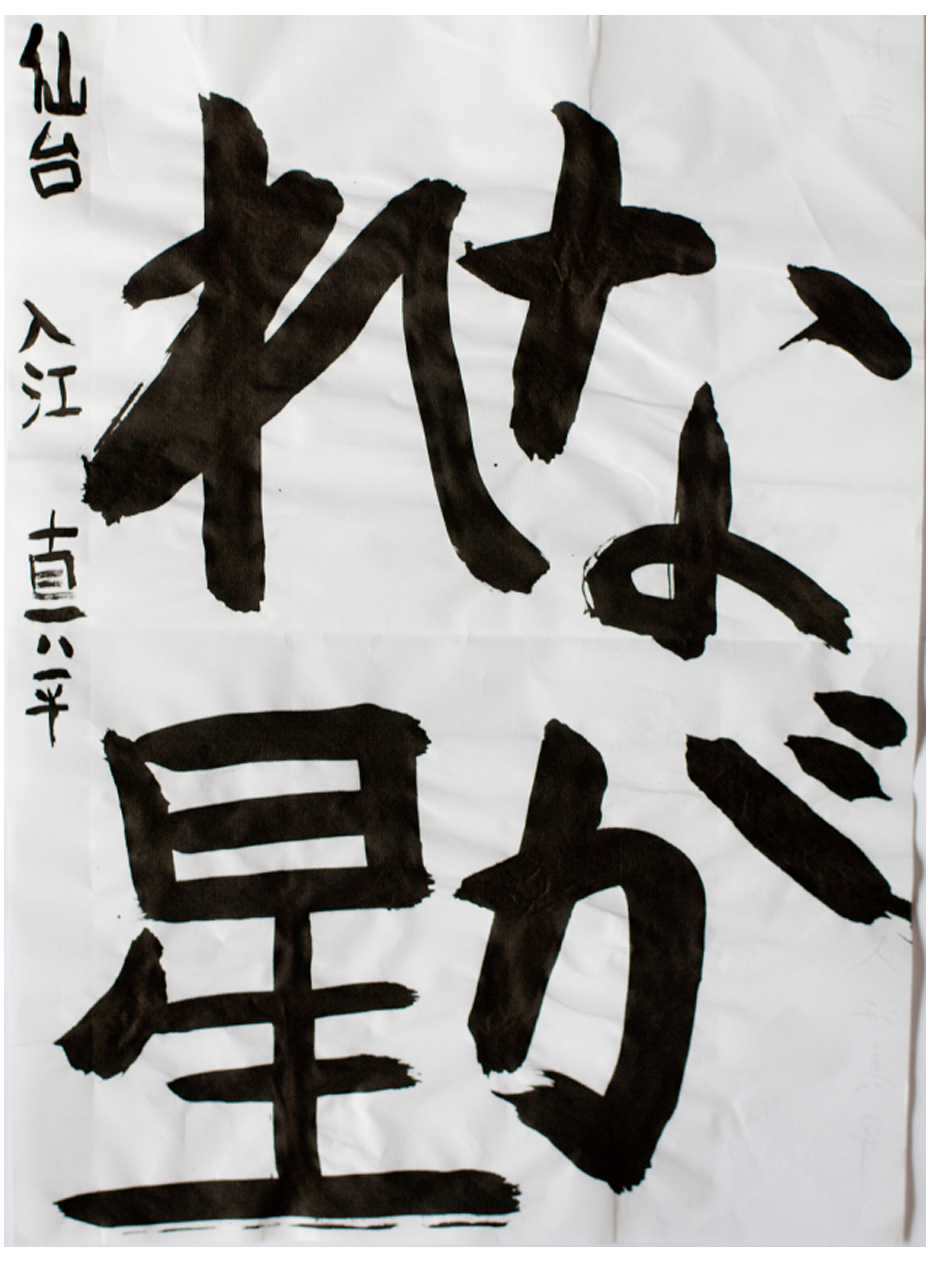 ながれ星
仙台 入江 真心平